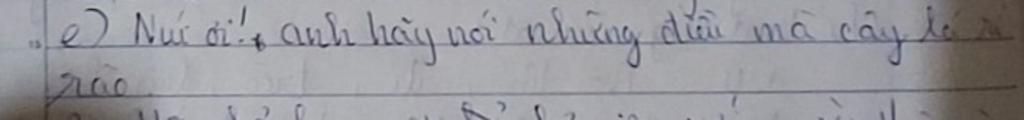 e) Núi ơi!, anh hãy nói những điều mà cây lá rì
rào